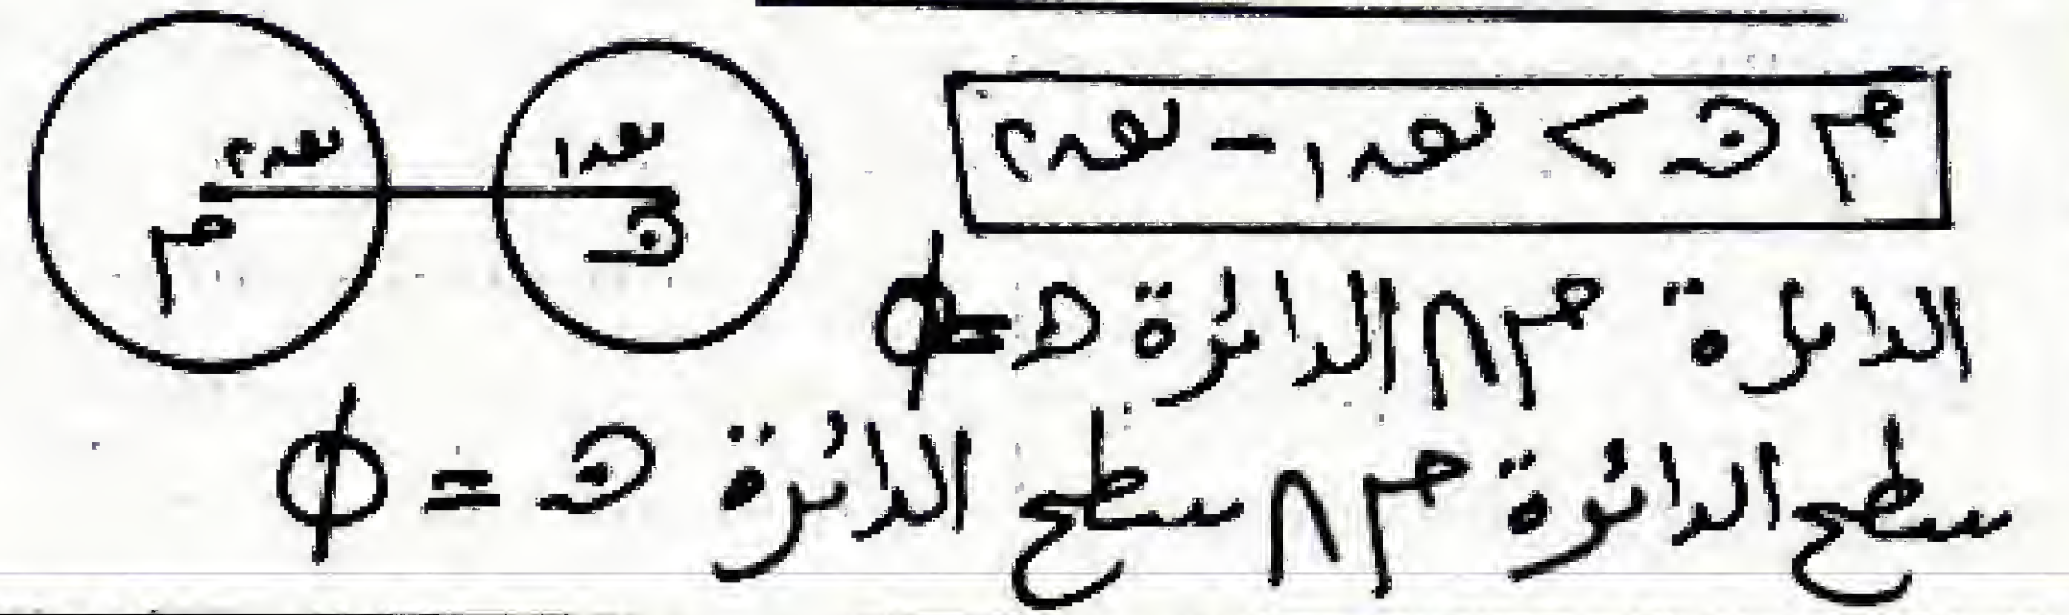 م ن > نق١ - نق٢
نق٢ نق١
م ن
الدائرة م ∩ الدائرة ن = ϕ
سطح الدائرة م ∩ سطح الدائرة ن = ϕ